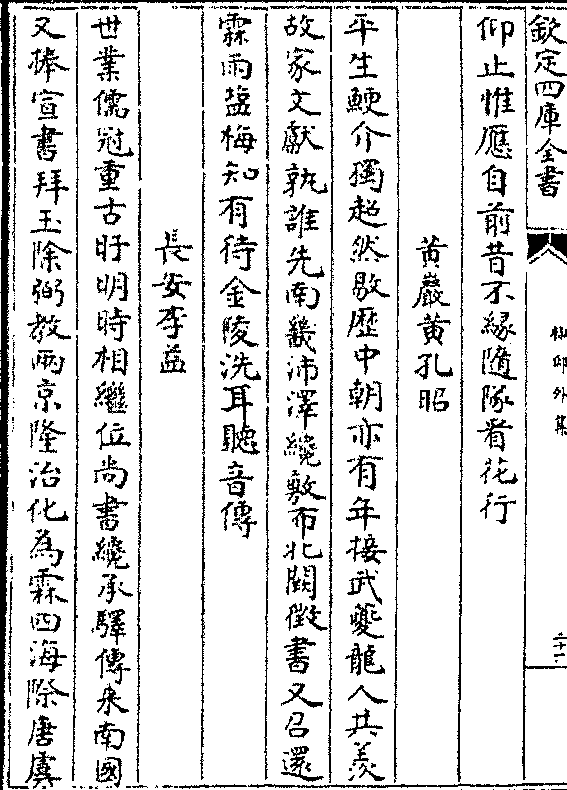 欽定四庫全書
椒邱外集
仰止惟應自前昔不緣隨隊看花行
黄巖黄孔昭
平生鯁介獨超然敭歷中朝亦有年接武夔龍人共羡
故家文獻孰誰先南畿沛澤纔敷布北闕徵書又召還
霖雨鹽梅知有待金陵洗耳聽音傳
長安李益
世業儒冠重古旴明時相繼位尚書纔承驛傳來南國
又捧宣書拜玉除弼教兩京隆治化為霖四海際唐虞